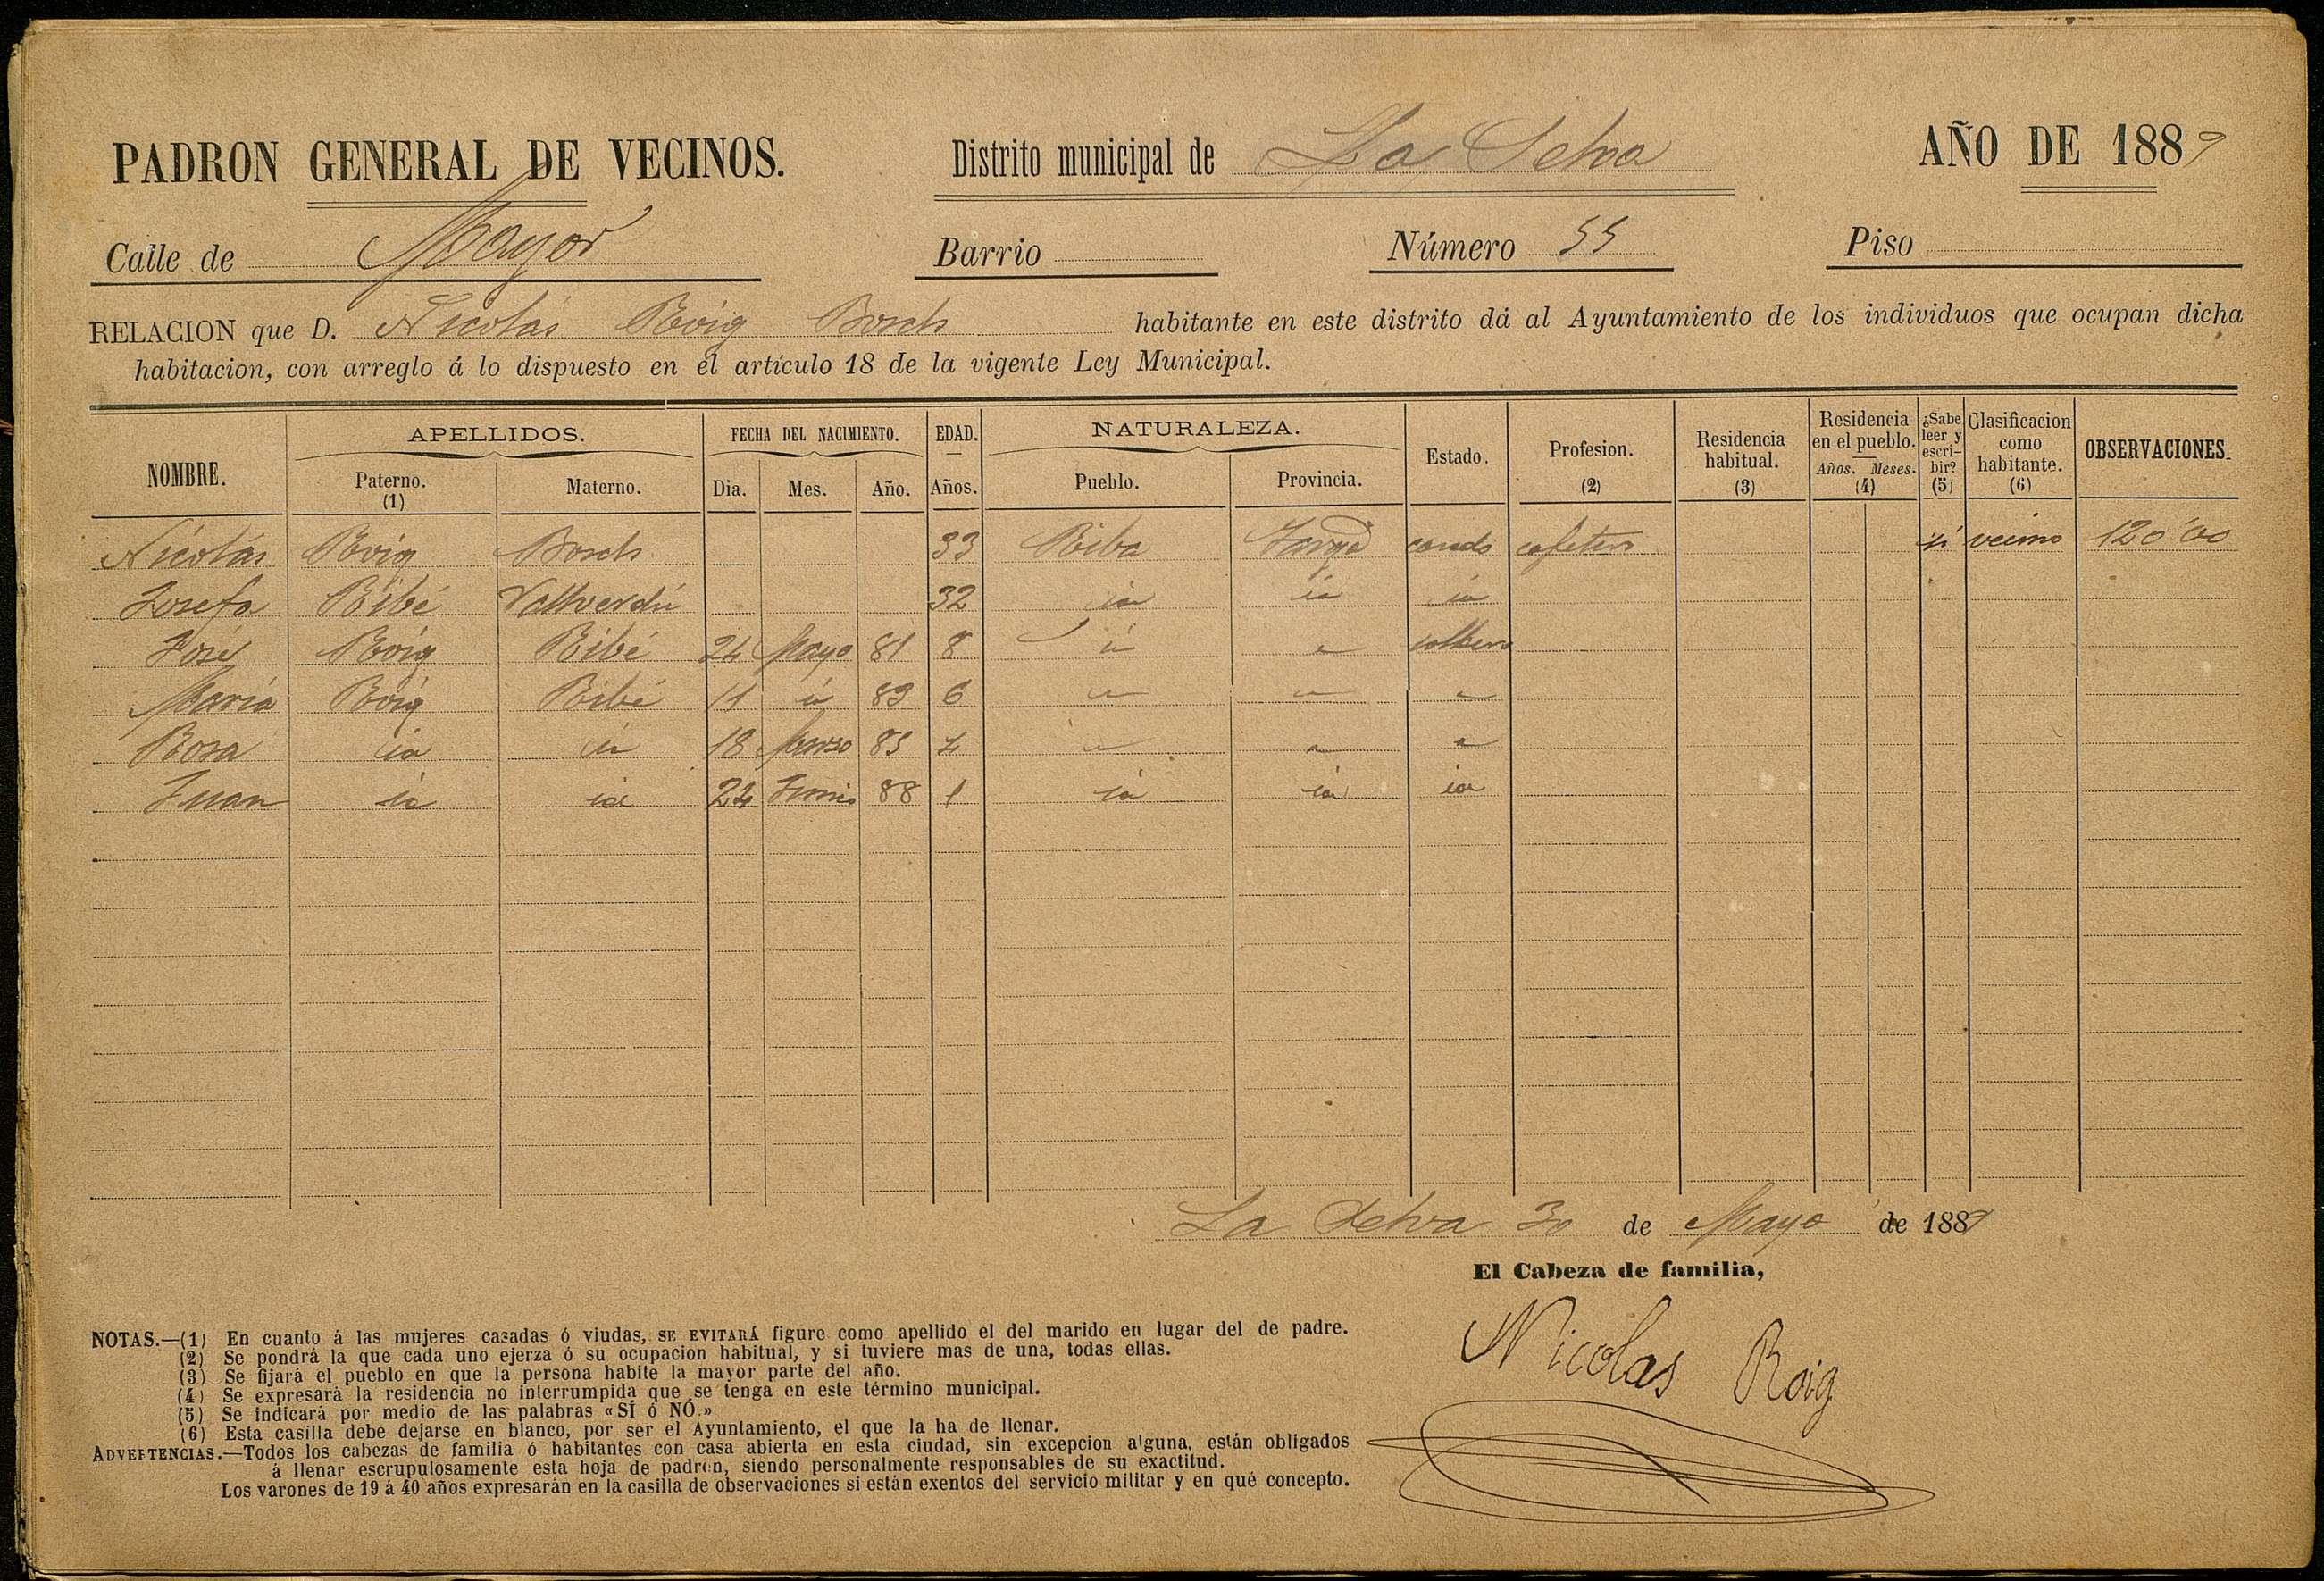 PADRON GENERAL DE VECINOS. Distrito municipal de La Selva AÑO DE 1889
Calle de Mayor Barrio Número 55 Piso
RELACION que D. Nicolás Roig Bosch habitante en este distrito dá al Ayuntamiento de los individuos que ocupan dicha
habitacion, con arreglo á lo dispuesto en el artículo 18 de la vigente Ley Municipal.
NOMBRE. APELLIDOS. Paterno. (1) Materno. FECHA DEL NACIMIENTO. Dia. Mes. Año. EDAD. Años. NATURALEZA. Pueblo. Provincia. Estado. Profesion. (2) Residencia habitual. (3) Residencia en el pueblo. Años. Meses. (4) ¿Sabe leer y escribir? (5) Clasificacion como habitante. (6) OBSERVACIONES.
Nicolás Roig Bosch 33 Riba Tarrgª casado cafetero si vecino 120'00
Josefa Ribé Vallverdú 32 id id id
José Roig Ribé 24 Mayo 81 8 id " soltero
María Roig Ribé 11 id 83 6 " " "
Rosa id id 18 Marzo 85 4 " " "
Juan id id 24 Junio 88 1 id id id
La Selva 30 de Mayo de 1889
El Cabeza de familia,
Nicolas Roig
NOTAS.—(1) En cuanto á las mujeres casadas ó viudas, SE EVITARÁ figure como apellido el del marido en lugar del de padre.
(2) Se pondrá la que cada uno ejerza ó su ocupacion habitual, y si tuviere mas de una, todas ellas.
(3) Se fijará el pueblo en que la persona habite la mayor parte del año.
(4) Se expresará la residencia no interrumpida que se tenga en este término municipal.
(5) Se indicará por medio de las palabras «SÍ ó NÓ.»
(6) Esta casilla debe dejarse en blanco, por ser el Ayuntamiento, el que la ha de llenar.
ADVERTENCIAS.—Todos los cabezas de familia ó habitantes con casa abierta en esta ciudad, sin excepcion alguna, están obligados
á llenar escrupulosamente esta hoja de padron, siendo personalmente responsables de su exactitud.
Los varones de 19 á 40 años expresarán en la casilla de observaciones si están exentos del servicio militar y en qué concepto.